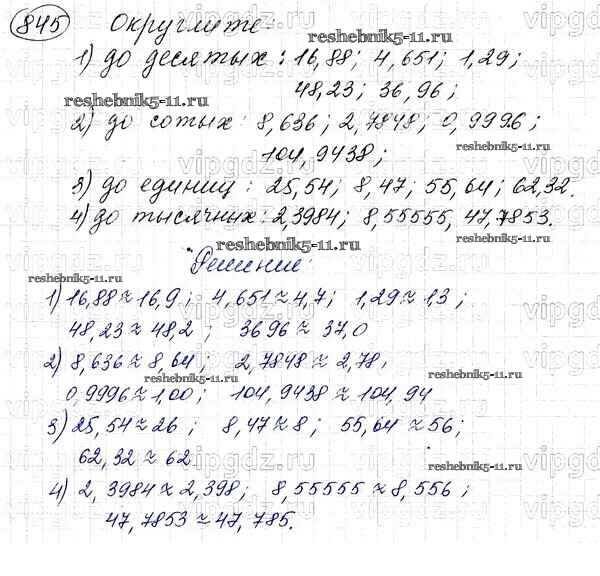 845 Округлите:
1) до десятых: 16,88; 4,651; 1,29;
48,23; 36,96;
reshebnik5-11.ru
2) до сотых: 8,636; 2,7848; 0,9996;
104,9438;
3) до единиц: 25,54; 8,47; 55,64; 62,32.
4) до тысячных: 2,3984; 8,55555, 47,7853.
reshebnik5-11.ru
Решение:
1) 16,88 ≈ 16,9; 4,651 ≈ 4,7; 1,29 ≈ 1,3;
48,23 ≈ 48,2; 36 96 ≈ 37,0
2) 8,636 ≈ 8,64; 2,7848 ≈ 2,78,
0,9996 ≈ 1,00; 104,9438 ≈ 104,94
3) 25,54 ≈ 26; 8,47 ≈ 8; 55,64 ≈ 56;
62,32 ≈ 62
4) 2,3984 ≈ 2,398; 8,55555 ≈ 8,556;
47,7853 ≈ 47,785.